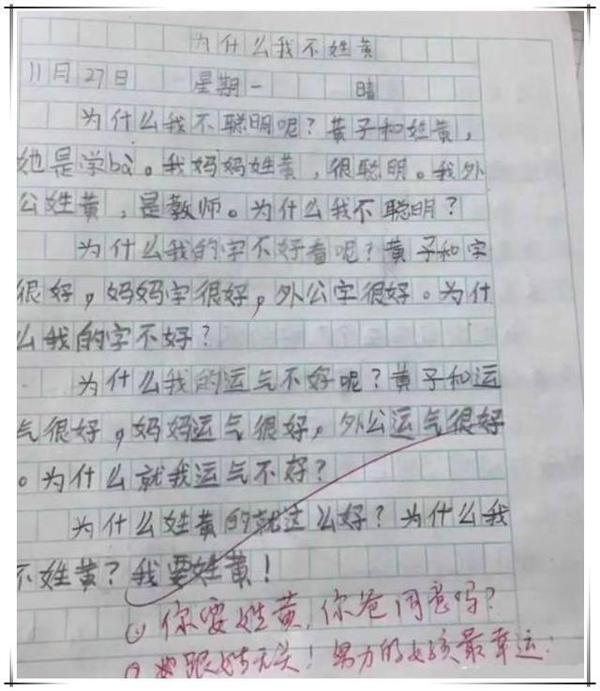 为什么我不姓黄
11月27日 星期一 晴
为什么我不聪明呢？黄子和姓黄，
她是学bà。我妈妈姓黄，很聪明。我外
公姓黄，是教师。为什么我不聪明？
为什么我的字不好看呢？黄子和字
很好，妈妈字很好，外公字很好。为什
么我的字不好？
为什么我的运气不好呢？黄子和运
气很好，妈妈运气很好，外公运气很好
。为什么就我运气不好？
为什么姓黄的就这么好？为什么我
不姓黄？我要姓黄！
① 你要姓黄，你爸同意吗？
② 跟姓无关！努力的女孩最幸运！